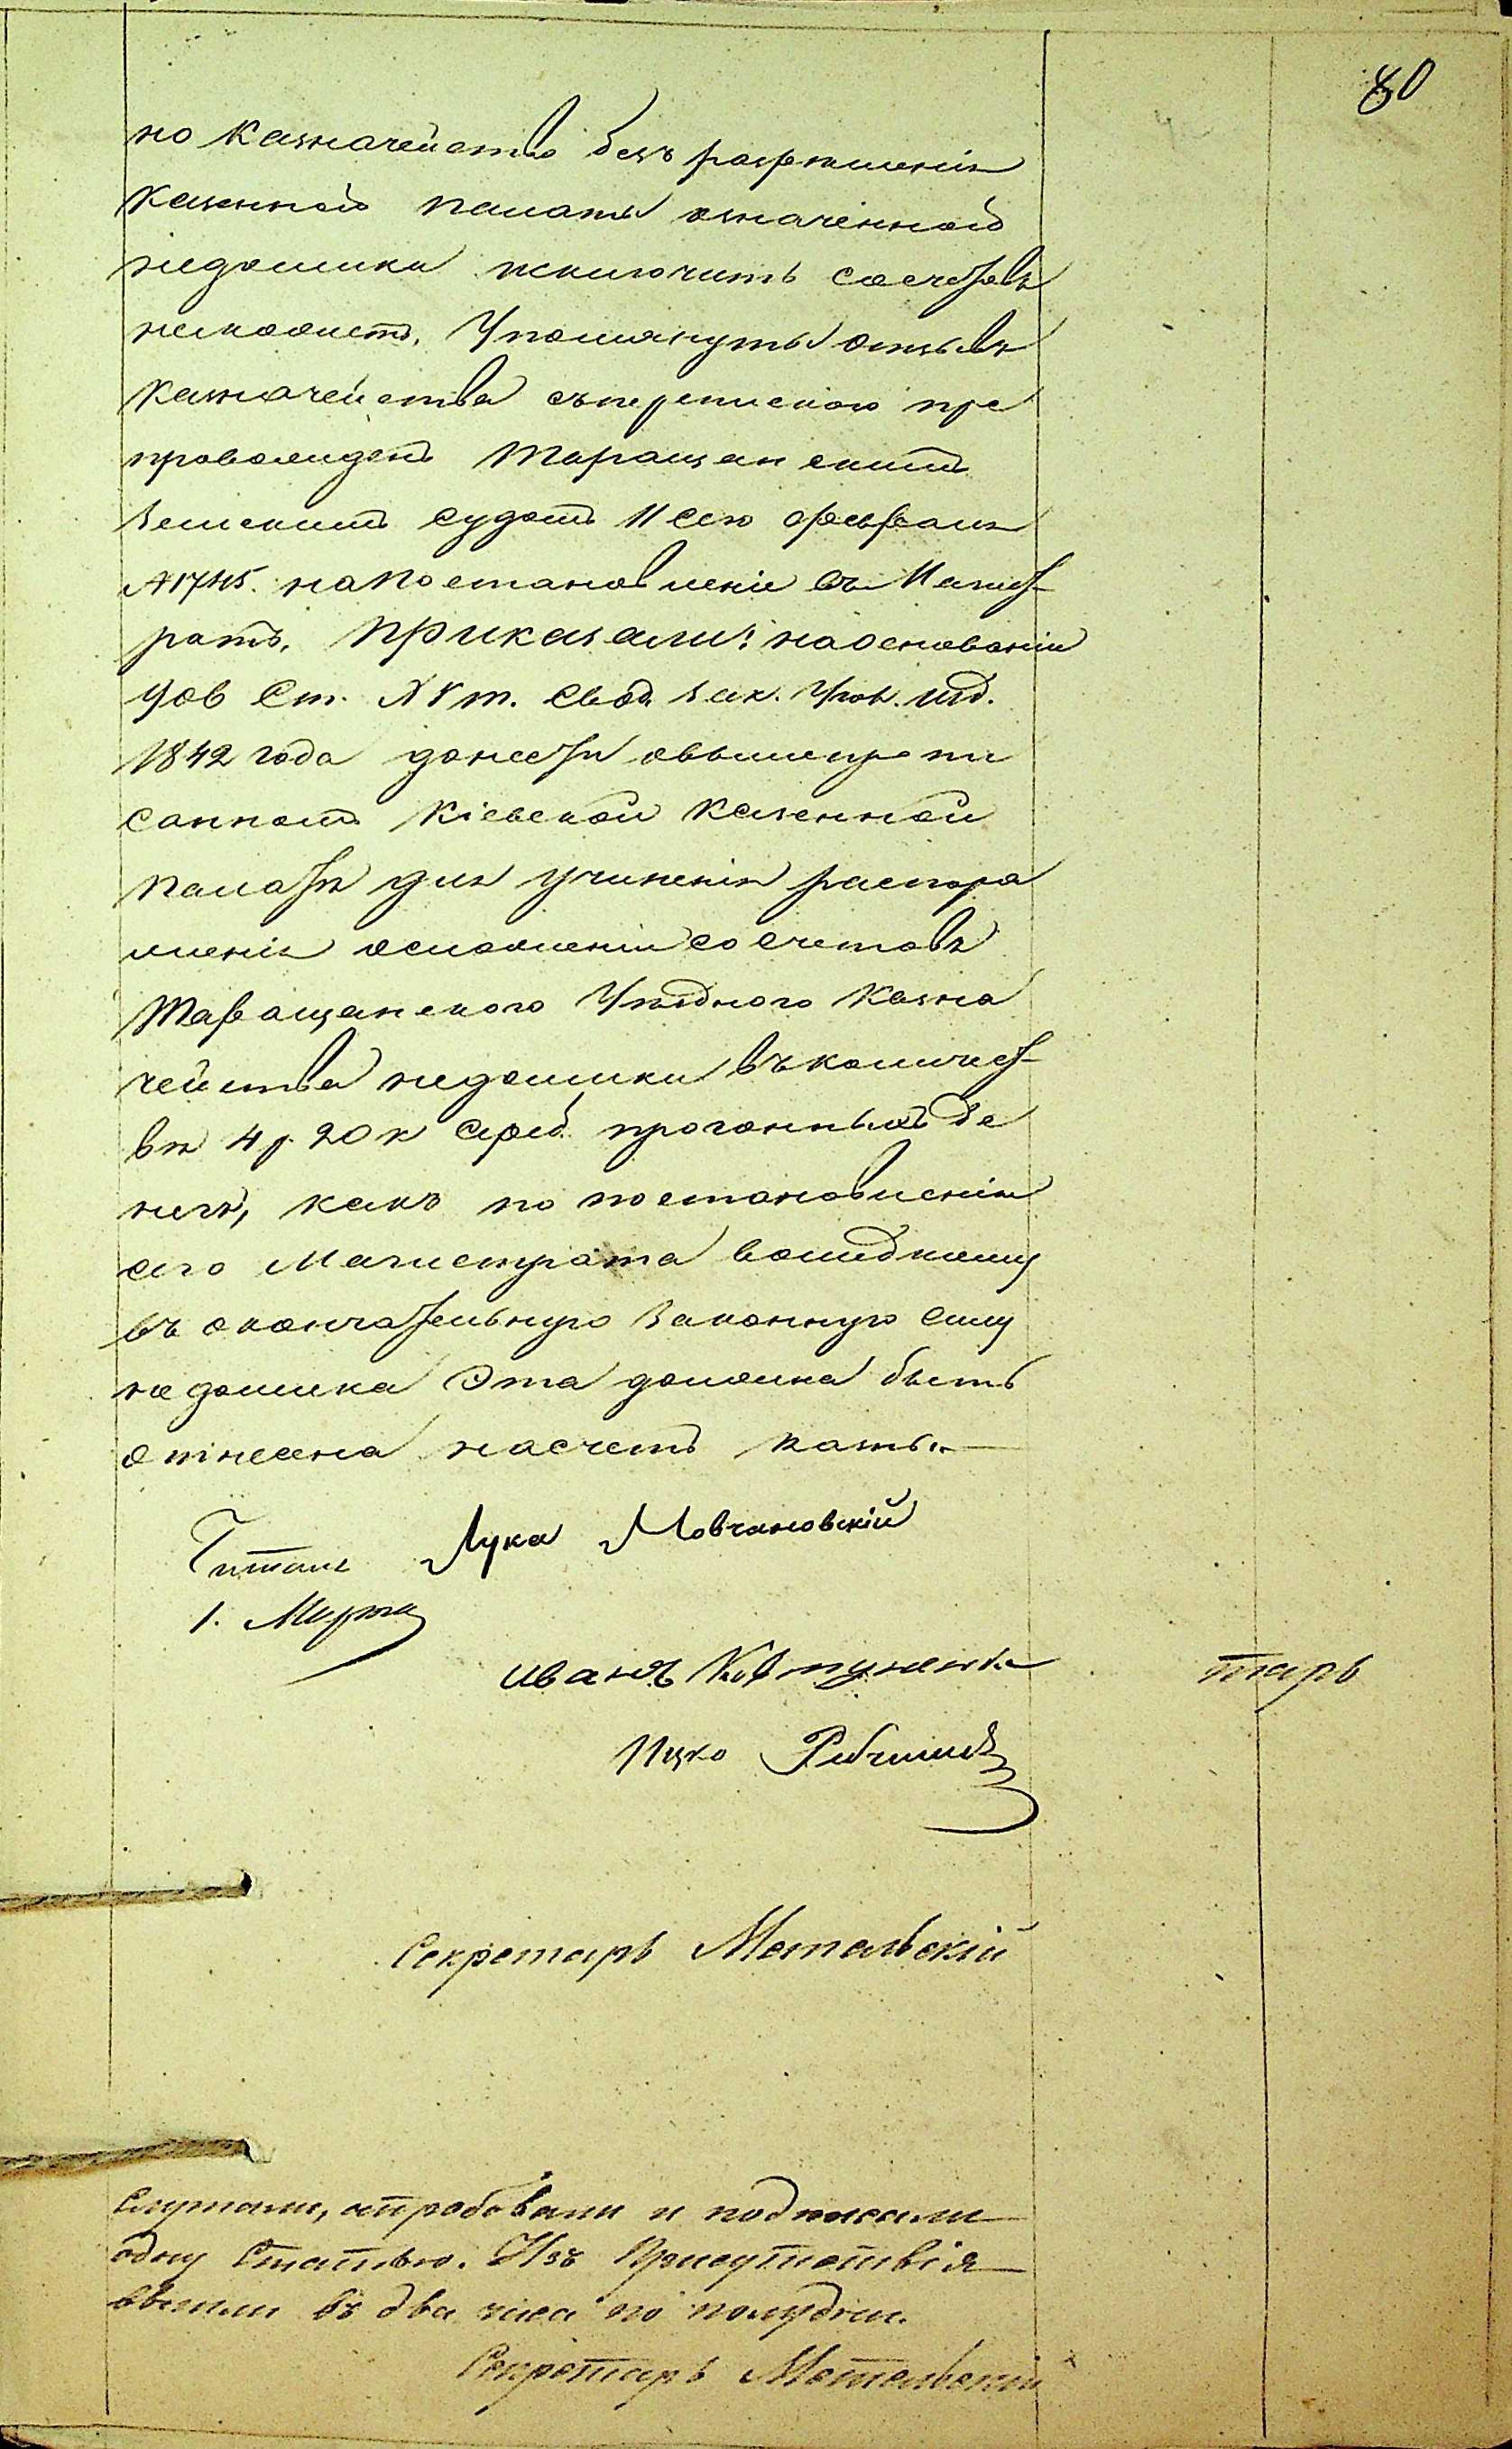 80
но казначейство безъ разрѣшенія
казенной палаты означенной
недоимки исключить со счетовъ
неможетъ, Упомянутый отзывъ
казначейства съ перепискою пре
провожденъ Таращанскимъ
Земскимъ судомъ 11 сего февраля
№ 1745. на постановленіе въ Магист-
ратъ, Приказали: на основаніи
Ст. XV т. Свод. Зак. Угол. изд.
1842 года донести овышепропи
санномъ Кіевской Казенной
палатѣ для учиненія распоря
женія осложеніи со счетовъ
Таращанского Уѣздного Казна
чейства недоимки въ количест-
вѣ 4 р. 20 к сереб. прогонныхъ де
негъ, какъ по постановленію
сего Магистрата вошедшему
въ окончательную законную силу
недоимка Эта должна быть
отнесена на счетъ казны.
Читалъ Лука Мовчановскій
Иванъ Ковтуненко
Ицко
тарь
Секретарь Метельскій
Слушали, апробовали и подписали
одну Статью. Изъ Присутствія
вышли въ два часа по полудни.
Секретарь Метельскій